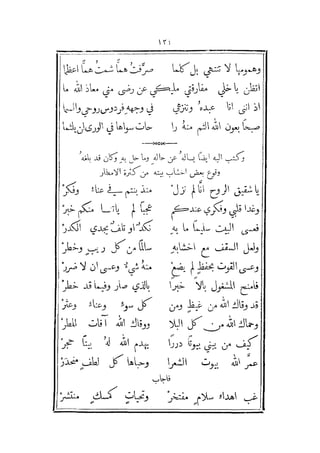 ١٣١
وهمومها لا تنتهي بل كلما صرّفتُ همًّا شمتُ همًّا اعظما
اتظن باخلي مفارقتي مليكي عن رضى مني معاذ الله ما
اذ انني انا عبده وتنزهي في وجههِ فردوس روحي والسما
صبحًا بعون الله التم منهُ را حات سواها في الورى لن يلثما
وكتب اليه ايضًا يسالهُ عن حاله وما حل به وكان قد بلغهُ
وقوع بعض اخشاب بيته من كثرة الامطار
يا شقيق الروح انَّا لم نزلْ منذ بنتم في عناء وفكرْ
وغدا قلبي وفكري عندكم عجبًا لم ياتنا منكم خبرْ
فعسى البيت سليمًا ما به نكدٌ او تلفٌ يجدي الكدرْ
ولعل السقف مع اخشابه سالمًا من كل ريبٍ وخطرْ
وعسى القوت بحفظٍ لم يضع منهُ شيءٌ وعسى ان لا ضررْ
فامنح المشغول بالًا خبرًا بالذي صار وفيما قد خطرْ
قد وقاك الله من غيظٍ ومن كل سوءٍ وعناءٍ وعثرْ
وحماك الله من كل البلا ووقاك الله آفات المطرْ
كيف من يبني بيوتًا دررًا يهدم الله لهُ بيتًا حجرْ
عمَّر الله بيوت الشعرا وحباها كل لطفٍ منحدرْ
فاجاب
غب اهداء سلامٍ مفتخرْ وتحياتٍ كمسكٍ منتشرْ